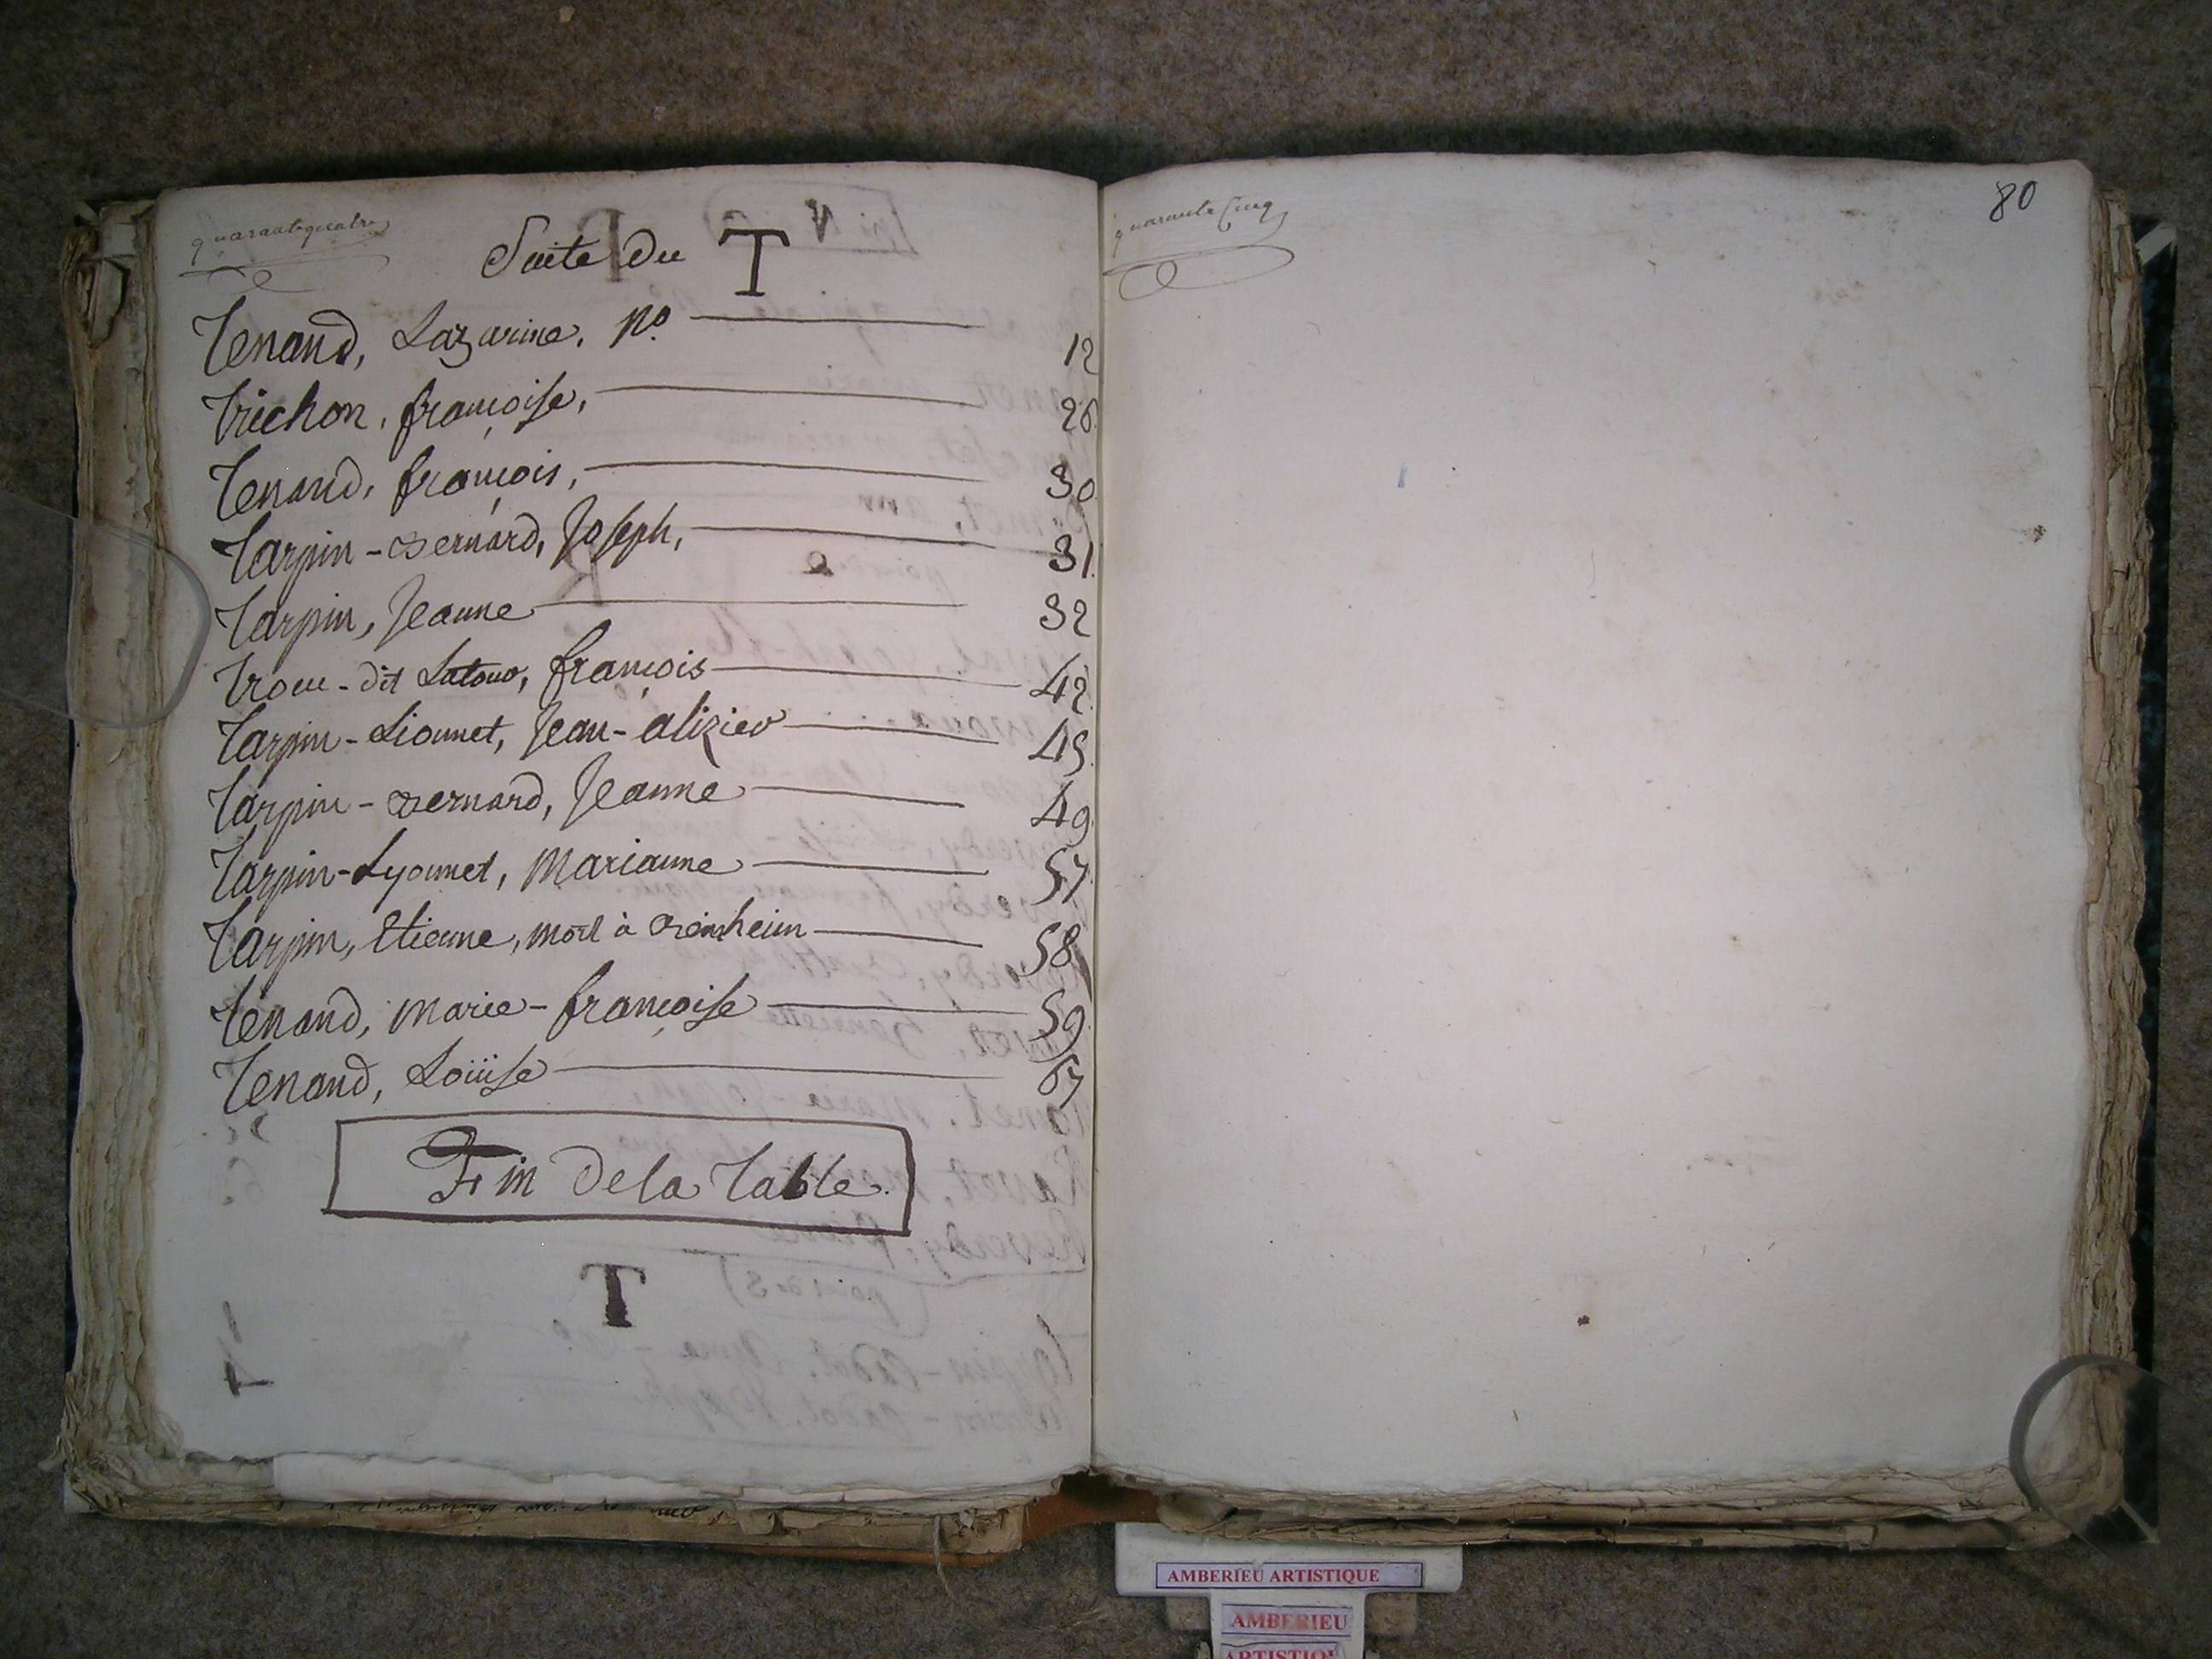 quarante quatre
Suite du T
Tenand, Lazarine, No. 12
Trichon, françoise, 26
Tenand, françois, 30
Tarpin-Bernard, Joseph, 31
Tarpin, Jeanne 32
dit Latour, françois 42
Tarpin-Lionnet, Jean-alizier 45
Tarpin-Bernard, Jeanne 49
Tarpin-Lyonnet, Marianne 57
Tarpin, Etienne, mort à 58
Tenand, marie-françoise 59
Tenand, Louise 67
Fin de la Table.
T
quarante Cinq
80
AMBERIEU ARTISTIQUE
AMBERIEU